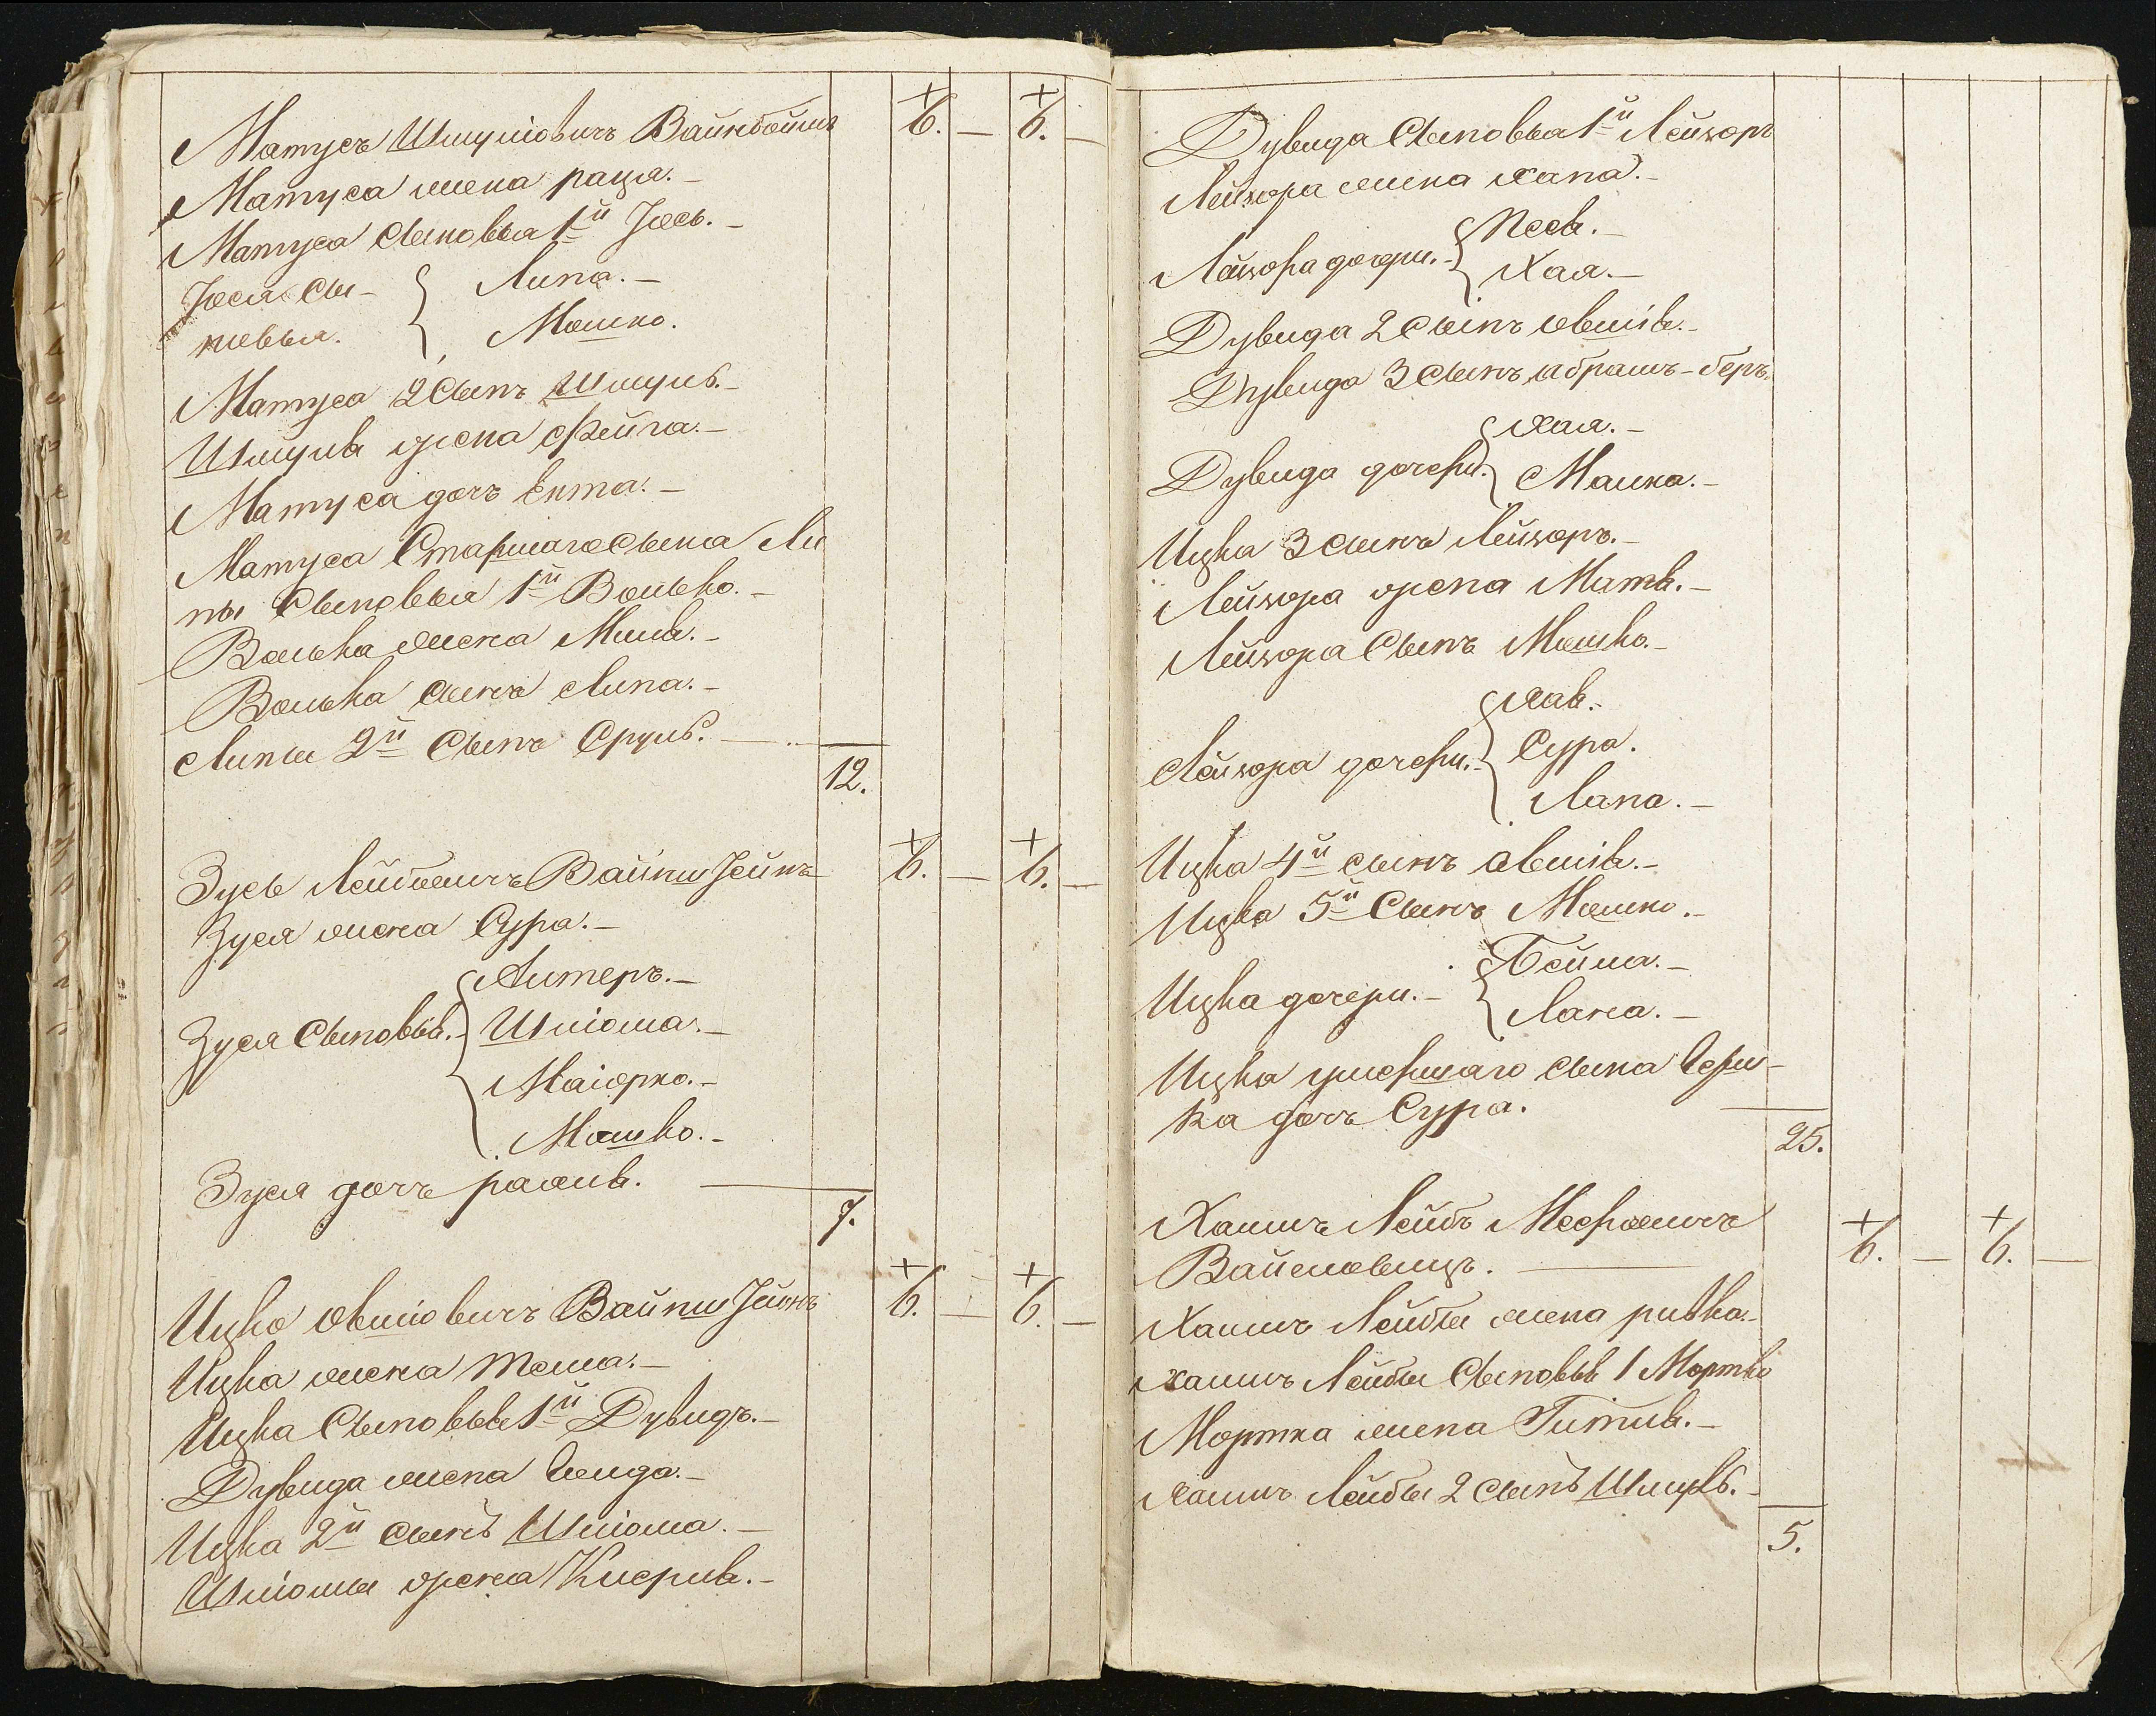 Матусъ Шмуліовичъ Вайнбоймъ 6. — 6. —
Матуса жена рация. —
Матуса Сыновья 1й Іось. —
Іося Сы- Липа. —
новья. Мошко.
Матуса 2 Сынъ Шмуль. —
Шмуля жена Фейга. —
Матуса дочь Ента. —
Матуса Старшаго Сына Ли
пы Сыновья 1й Волько. —
Волька жена Миля. —
Волька сынъ Липа. —
Липы 2й Сынъ Сруль. —
12.
Зусь Лейбовичъ Вайнштейнъ 6. — 6. —
Зуся жена Сура. —
Литеръ. —
Зуся Сыновья. Шліома. —
Маіорко. —
Мошко. —
Зуся дочь рахиля.
7.
Ицко овшіовичъ Вайнштейнъ 6. — 6. —
Ицка жена Тема. —
Ицка Сыновья 1й Дувидъ. —
Дувида жена
Ицка 2й сынъ Шліома. —
Шліомы жена —
Дувида Сыновья 1й Лейзоръ
Лейзора жена хана. —
Лейзора дочери. — Песя. —
Хая. —
Дувида 2 Сынъ овшія. —
Дувида 3 Сынъ абрамъ-беръ.
хая. —
Дувида дочери. Малка. —
Ицка 3 сынъ Лейзоръ. —
Лейзора жена Матя. —
Лейзора Сынъ Мошко. —
хая. —
Лейзора дочери. — Сура.
Хана. —
Ицка 4й сынъ овшія. —
Ицка 5й Сынъ Мошко. —
Бейла. —
Ицка дочери. — Хана. —
Ицка умершаго сына Бери-
ка дочь Сура.
25.
Хаимъ Лейбъ Меровичъ
Вайсловицъ. — 6. — 6. —
Хаимъ Лейбы жена ривка. —
хаимъ Лейбы Сыновья 1 Мортко
Мортка жена Гитля. —
хаимъ Лейбы 2 сынъ Шмуль. —
5.